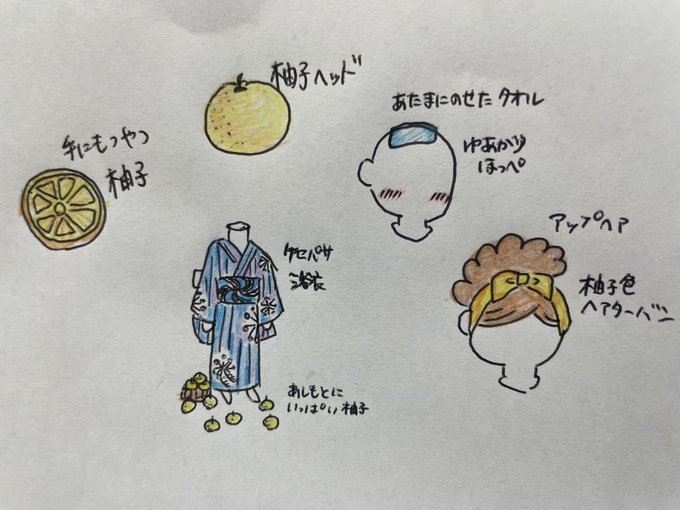 柚子ヘッド
あたまにのせたタオル
ゆあがり
ほっぺ
手にもつやつ
柚子
アップヘア
柚子色
ヘアターバン
ケセパサ
浴衣
あしもとに
いっぱい柚子